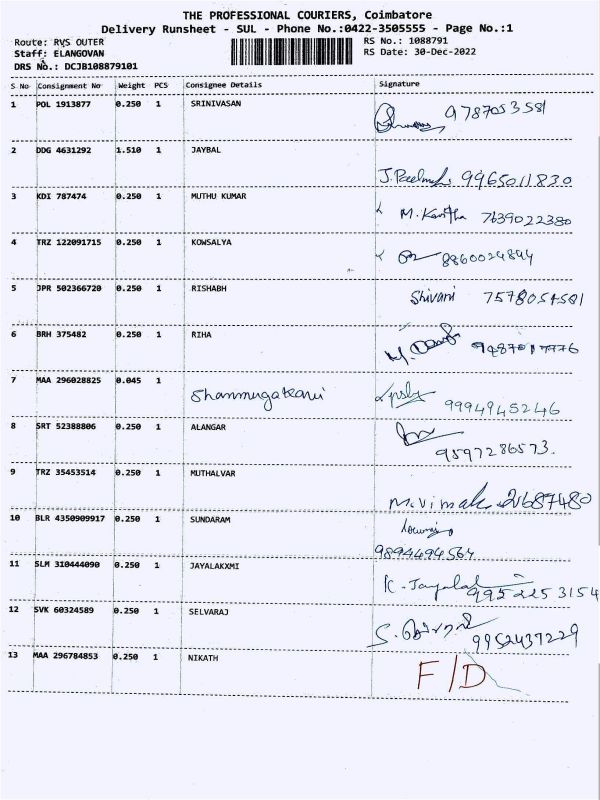 THE PROFESSIONAL COURIERS, Coimbatore
Delivery Runsheet - SUL - Phone No.:0422-3505555 - Page No.:1
Route: RVS OUTER RS No.: 1088791
Staff: ELANGOVAN RS Date: 30-Dec-2022
DRS No.: DCJB108879101
S No Consignment No Weight PCS Consignee Details Signature
1 POL 1913877 0.250 1 SRINIVASAN 9787053581
2 DDG 4631292 1.510 1 JAYBAL 9965011830
3 KDI 787474 0.250 1 MUTHU KUMAR M. Kavitha 7639022380
4 TRZ 122091715 0.250 1 KOWSALYA 8860029894
5 JPR 502366720 0.250 1 RISHABH Shivani 7578051581
6 BRH 375482 0.250 1 RIHA
7 MAA 296028825 0.045 1 9994945246
8 SRT 52388806 0.250 1 ALANGAR 9597286573.
9 TRZ 35453514 0.250 1 MUTHALVAR 2687480
10 BLR 4350909917 0.250 1 SUNDARAM
9894494564
11 SLM 310444090 0.250 1 JAYALAKXMI 9952253154
12 SVK 60324589 0.250 1 SELVARAJ 9952437229
13 MAA 296784853 0.250 1 NIKATH F/D